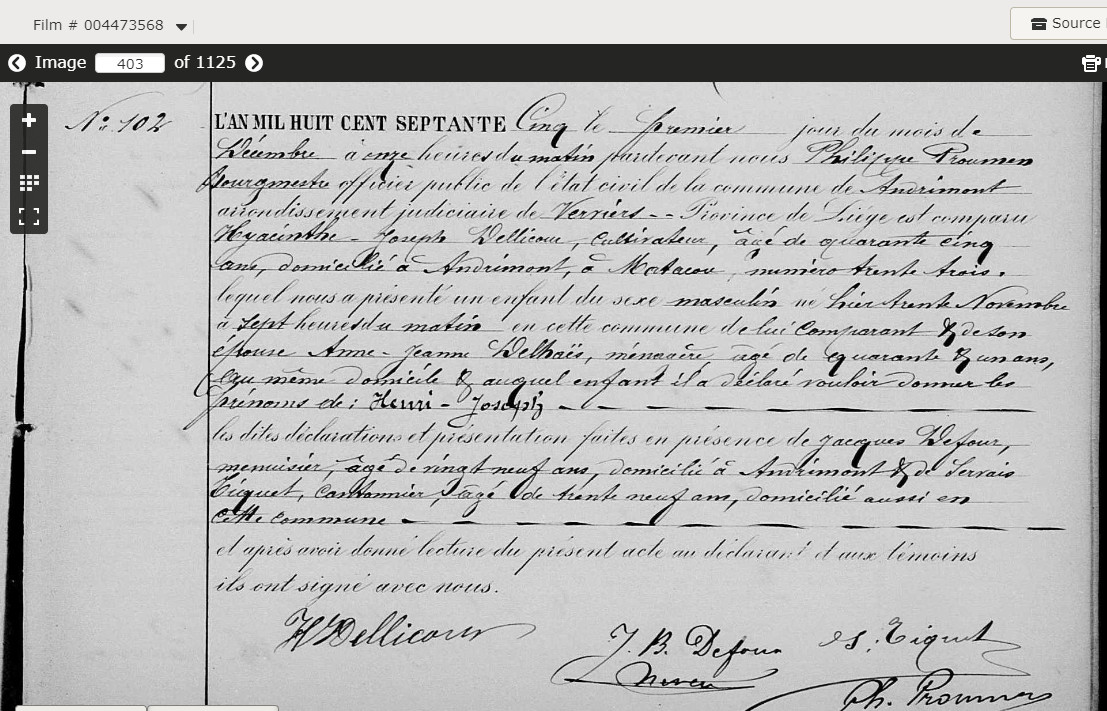 Film # 004473568
Source
Image 403 of 1125
N° 102
L'AN MIL HUIT CENT SEPTANTE Cinq le premier jour du mois de
Décembre à onze heures du matin pardevant nous Philippe Proumen
Bourgmestre officier public de l'état civil de la commune de Andrimont
arrondissement judiciaire de Verviers -- Province de Liége est comparu
Hyacinthe - Joseph Dellicour, Cultivateur, âgé de quarante cinq
ans, domicilié à Andrimont, à Matacou, numéro trente trois.
lequel nous a présenté un enfant du sexe masculin né hier trente Novembre
à sept heures du matin en cette commune de lui Comparant & de son
épouse Anne - Jeanne Delhaës, ménagère agé de quarante & un ans,
au même domicile & auquel enfant il a déclaré vouloir donner les
prénoms de : Henri - Joseph
les dites déclarations et présentation faites en présence de Jacques Defour,
menuisier, âgé de vingt neuf ans, domicilié à Andrimont & de Servais
Tiquet, Cantonnier, âgé de trente neuf ans, domicilié aussi en
cette commune
et après avoir donné lecture du présent acte au déclarant et aux témoins
ils ont signé avec nous.
H Dellicour
J. B. Defour
S. Tiquet
Ph. Proumen